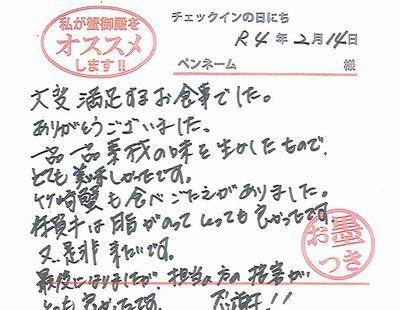 私が蟹御殿を
オススメ
します!!
チェックインの日にち
R4年2月14日
ペンネーム 様
大変満足するお食事でした。
ありがとうございました。
一品一品素材の味を生かしたもので、
とても美味しかったです。
竹崎蟹も食べごたえがありました。
佐賀牛は脂がのってとっても良かったです。
又、是非来たいです。
最後になりましたが、担当の方の接客が
とっても良かったです。 感謝!!
お墨
つき